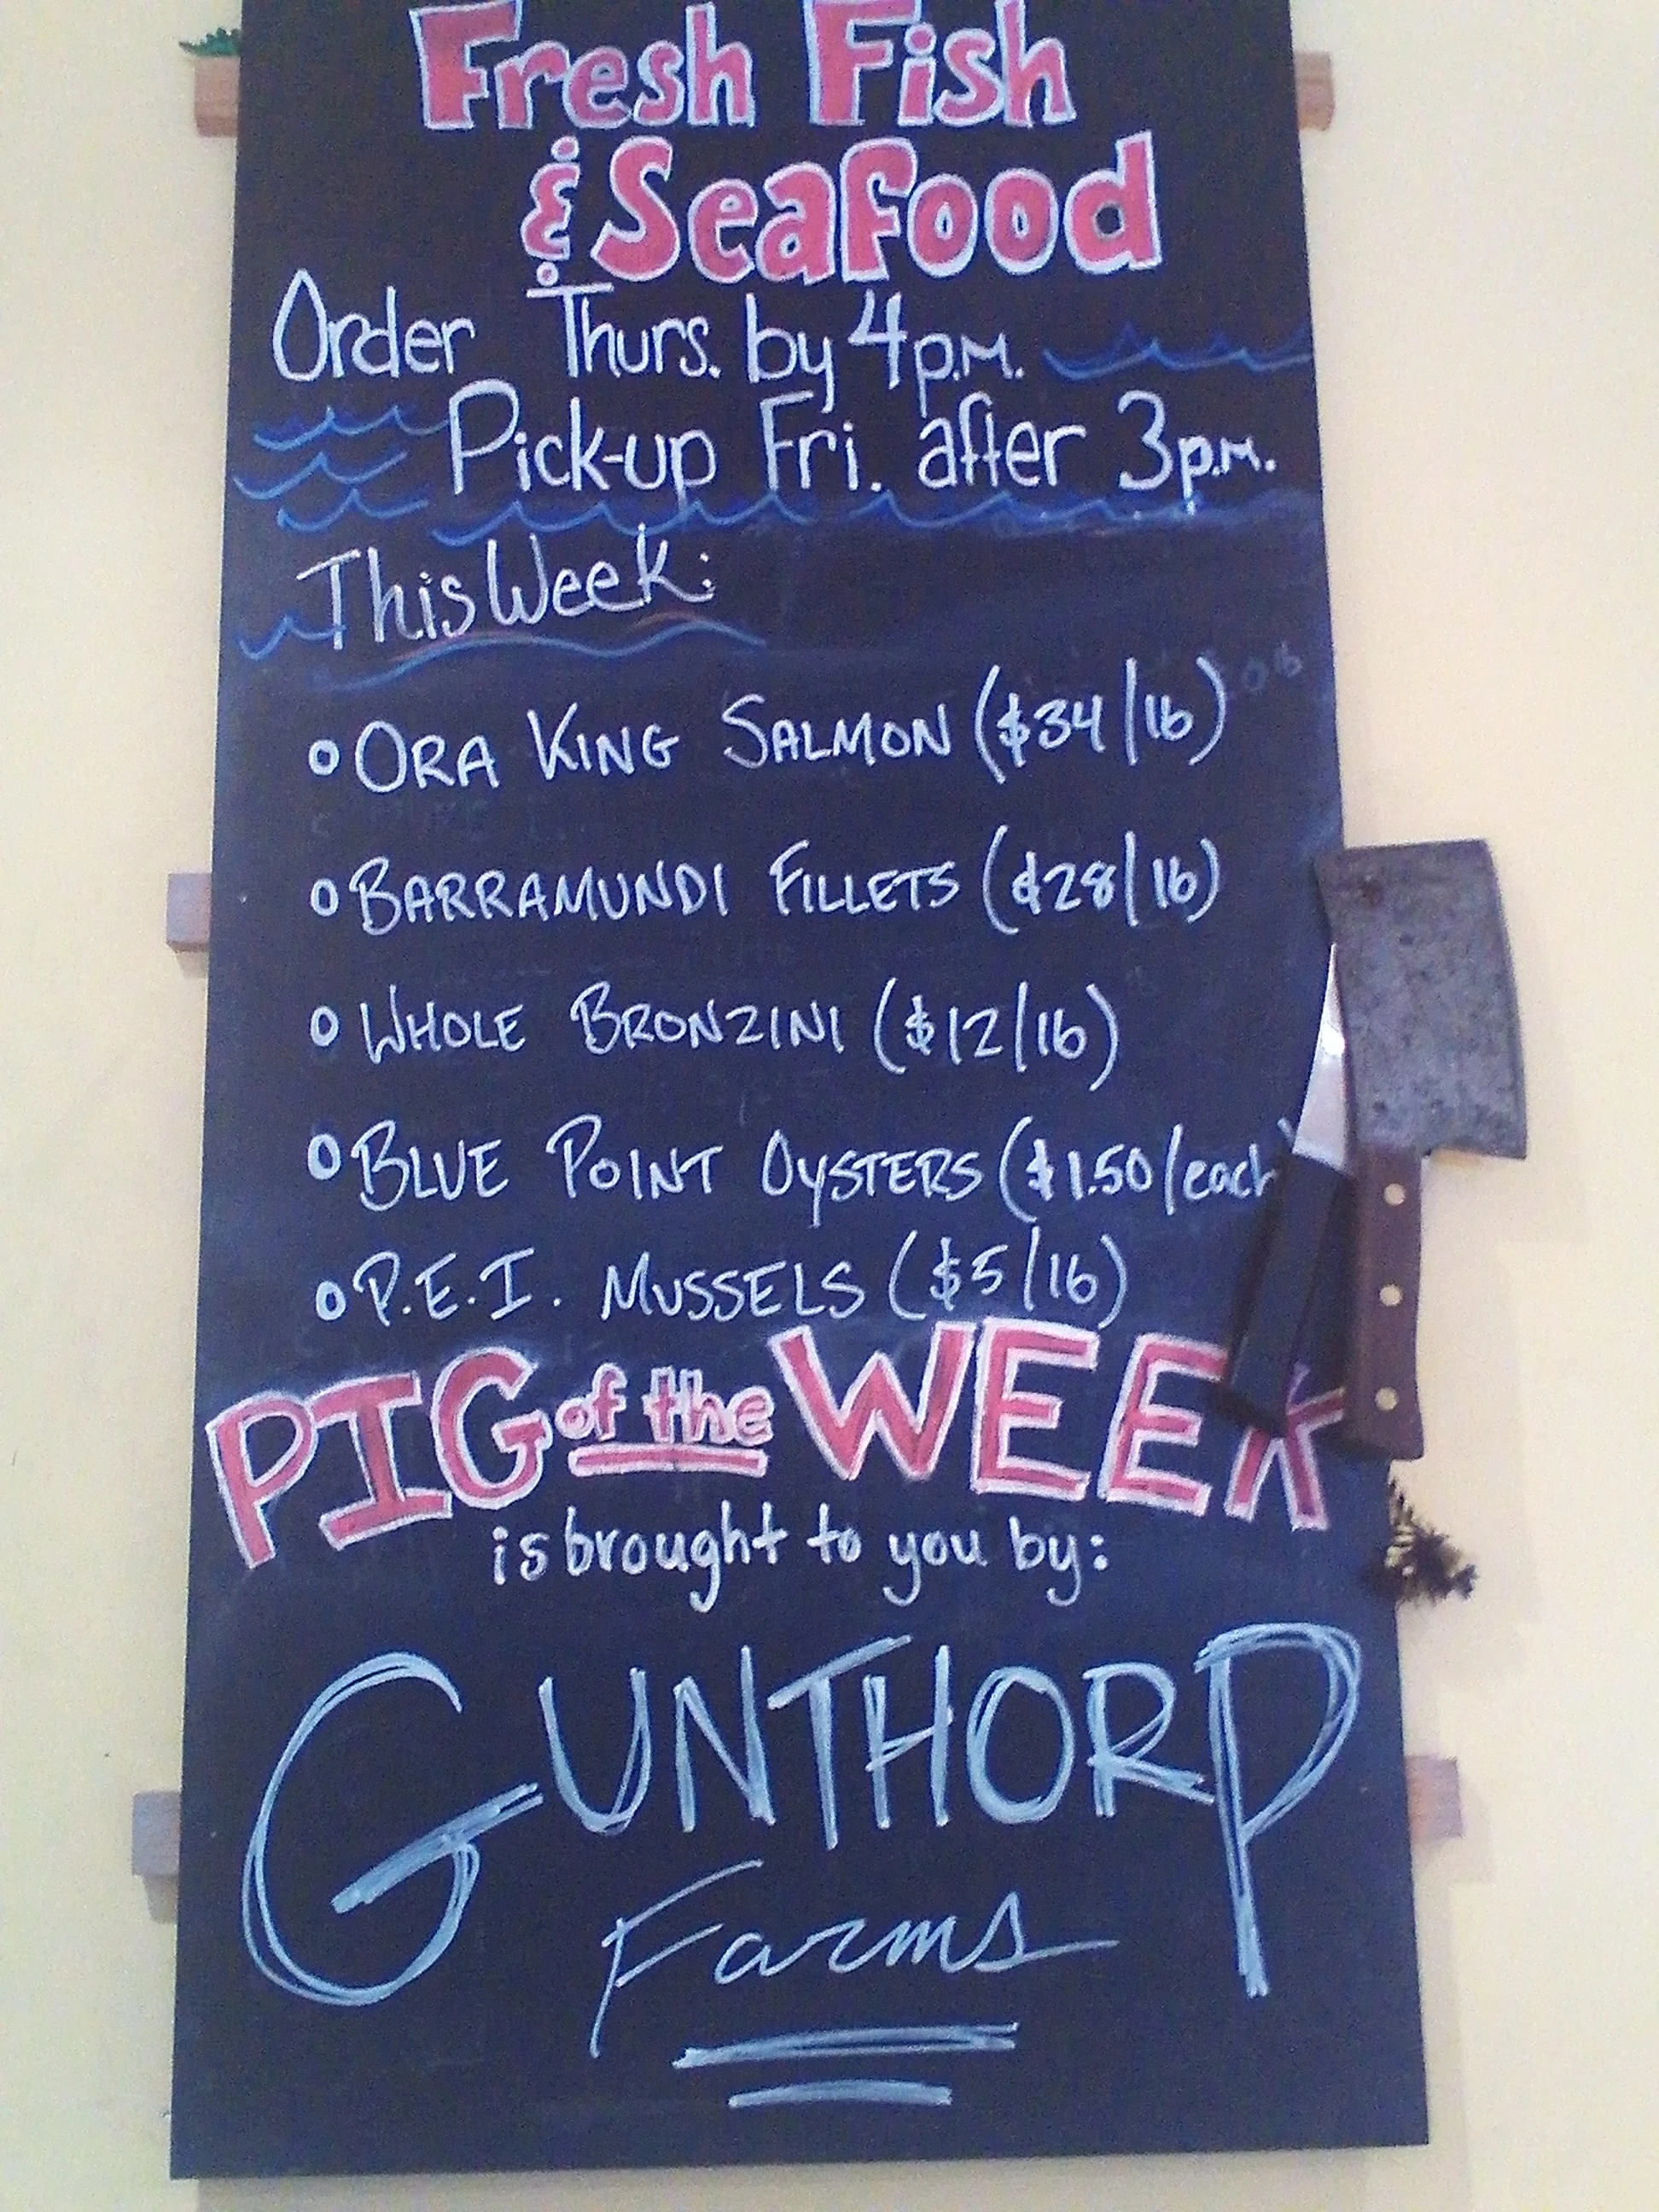 Fresh Fish
& Seafood
Order Thurs. by 4 p.m.
Pick-up Fri. after 3 p.m.
This Week:
ORA KING SALMON ($34/lb)
BARRAMUNDI FILLETS ($28/lb)
WHOLE BRONZINI ($12/lb)
BLUE POINT OYSTERS ($1.50/each)
P.E.I. MUSSELS ($5/lb)
PIG of the WEEK
is brought to you by:
GUNTHORP
Farms